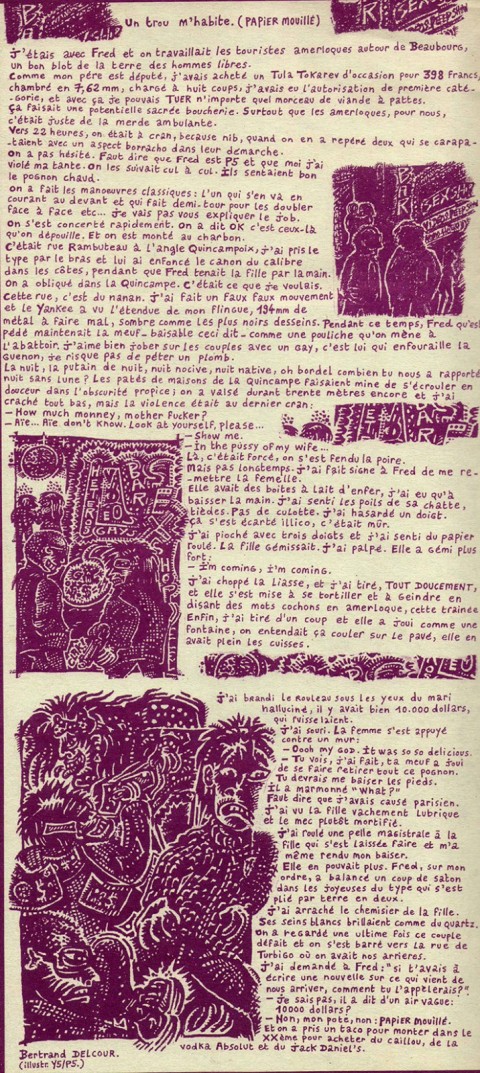 Un trou m'habite. (PAPIER MOUILLÉ)
j'étais avec Fred et on travaillait les touristes amerloques autour de Beaubourg,
un bon blot de la terre des hommes libres.
Comme mon père est député, j'avais acheté un Tula Tokarev d'occasion pour 398 Francs,
chambré en 7,62 mm, chargé à huit coups, j'avais eu l'autorisation de première caté-
-gorie, et avec ça je pouvais TUER n'importe quel morceau de viande à pattes.
Ça faisait une potentielle sacrée boucherie. Surtout que les amerloques, pour nous,
c'était juste de la merde ambulante.
Vers 22 heures, on était à cran, because nib, quand on en a repéré deux qui se carapa-
-taient avec un aspect borracho dans leur démarche.
On a pas hésité. Faut dire que Fred est P5 et que moi j'ai
violé ma tante. On les suivait cul à cul. Ils sentaient bon
le pognon chaud.
On a fait les manoeuvres classiques: l'un qui s'en va en
courant au devant et qui fait demi-tour pour les doubler
face à face etc... je vais pas vous expliquer le job.
On s'est concerté rapidement. On a dit OK c'est ceux-là
qu'on dépouille. Et on est monté au charbon.
C'était rue Rambuteau à l'angle Quincampoix, j'ai pris le
type par le bras et lui ai enfoncé le canon du calibre
dans les côtes, pendant que Fred tenait la fille par la main.
On a obliqué dans la Quincampe. C'était ce que je voulais.
Cette rue, c'est du nanan. j'ai fait un faux faux mouvement
et le Yankee a vu l'étendue de mon flingue, 194mm de
métal à faire mal, sombre comme les plus noirs desseins. Pendant ce temps, Fred qu'est
pédé maintenait la meuf - baisable ceci dit - comme une pouliche qu'on mène à
l'abattoir. j'aime bien jober sur les couples avec un gay, c'est lui qui enfouraille la
guenon, je risque pas de péter un plomb.
La nuit, la putain de nuit, nuit nocive, nuit native, oh bordel combien tu nous a rapporté
nuit sans lune ? Les patés de maisons de la Quincampe faisaient mine de s'écrouler en
douceur dans l'obscurité propice; on a valsé durant trente mètres encore et j'ai
craché tout bas, mais la violence était au dernier cran:
— How much monney, mother fucker?
— Aïe... Aïe don't know. Look at yourself, please...
— Show me.
— In the pussy of my wife...
Là, c'était forcé, on s'est fendu la poire.
Mais pas longtemps. j'ai fait signe à Fred de me re-
-mettre la femelle.
Elle avait des boîtes à lait d'enfer, j'ai eu qu'à
baisser la main. j'ai senti les poils de sa chatte,
tièdes. Pas de culotte. j'ai hasardé un doigt.
Ça s'est écarté illico, c'était mûr.
j'ai pioché avec trois doigts et j'ai senti du papier
roulé. La fille gémissait. j'ai palpé. Elle a gémi plus
fort:
— I'm coming, I'm coming.
j'ai choppé la liasse, et j'ai tiré, TOUT DOUCEMENT,
et elle s'est mise à se tortiller et à geindre en
disant des mots cochons en amerloque, cette traînée
Enfin, j'ai tiré d'un coup et elle a joui comme une
fontaine, on entendait ça couler sur le pavé, elle en
avait plein les cuisses.
j'ai brandi le rouleau sous les yeux du mari
halluciné, il y avait bien 10.000 dollars,
qui ruisselaient.
j'ai souri. La femme s'est appuyé
contre un mur:
— Oooh my God. It was so so delicious.
— Tu vois, j'ai fait, ta meuf a joui
de se faire retirer tout ce pognon.
Tu devrais me baiser les pieds.
Il a marmonné "What?"
Faut dire que j'avais causé parisien.
j'ai vu la fille vachement lubrique
et le mec plutôt mortifié.
j'ai roulé une pelle magistrale à la
fille qui s'est laissée faire et m'a
même rendu mon baiser.
Elle en pouvait plus. Fred, sur mon
ordre, a balancé un coup de saton
dans les joyeuses du type qui s'est
plié par terre en deux.
j'ai arraché le chemisier de la fille.
Ses seins blancs brillaient comme du quartz.
On a regardé une ultime fois ce couple
défait et on s'est barré vers la rue de
Turbigo où on avait nos arrières.
j'ai demandé à Fred: "si t'avais à
écrire une nouvelle sur ce qui vient de
nous arriver, comment tu l'appèlerais?"
— Je sais pas, il a dit d'un air vague:
10000 dollars?
— Non, mon pote, non: PAPIER MOUILLÉ.
Et on a pris un taco pour monter dans le
XXème pour acheter du caillou, de la
vodka Absolut et du Jack Daniel's.
Bertrand DELCOUR.
(illustr. Y5/P5.)